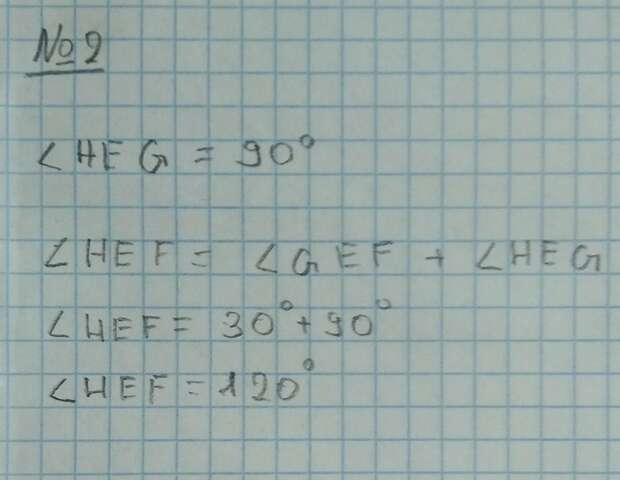 №2
∠HEG = 90°
∠HEF = ∠GEF + ∠HEG
∠HEF = 30° + 90°
∠HEF = 120°